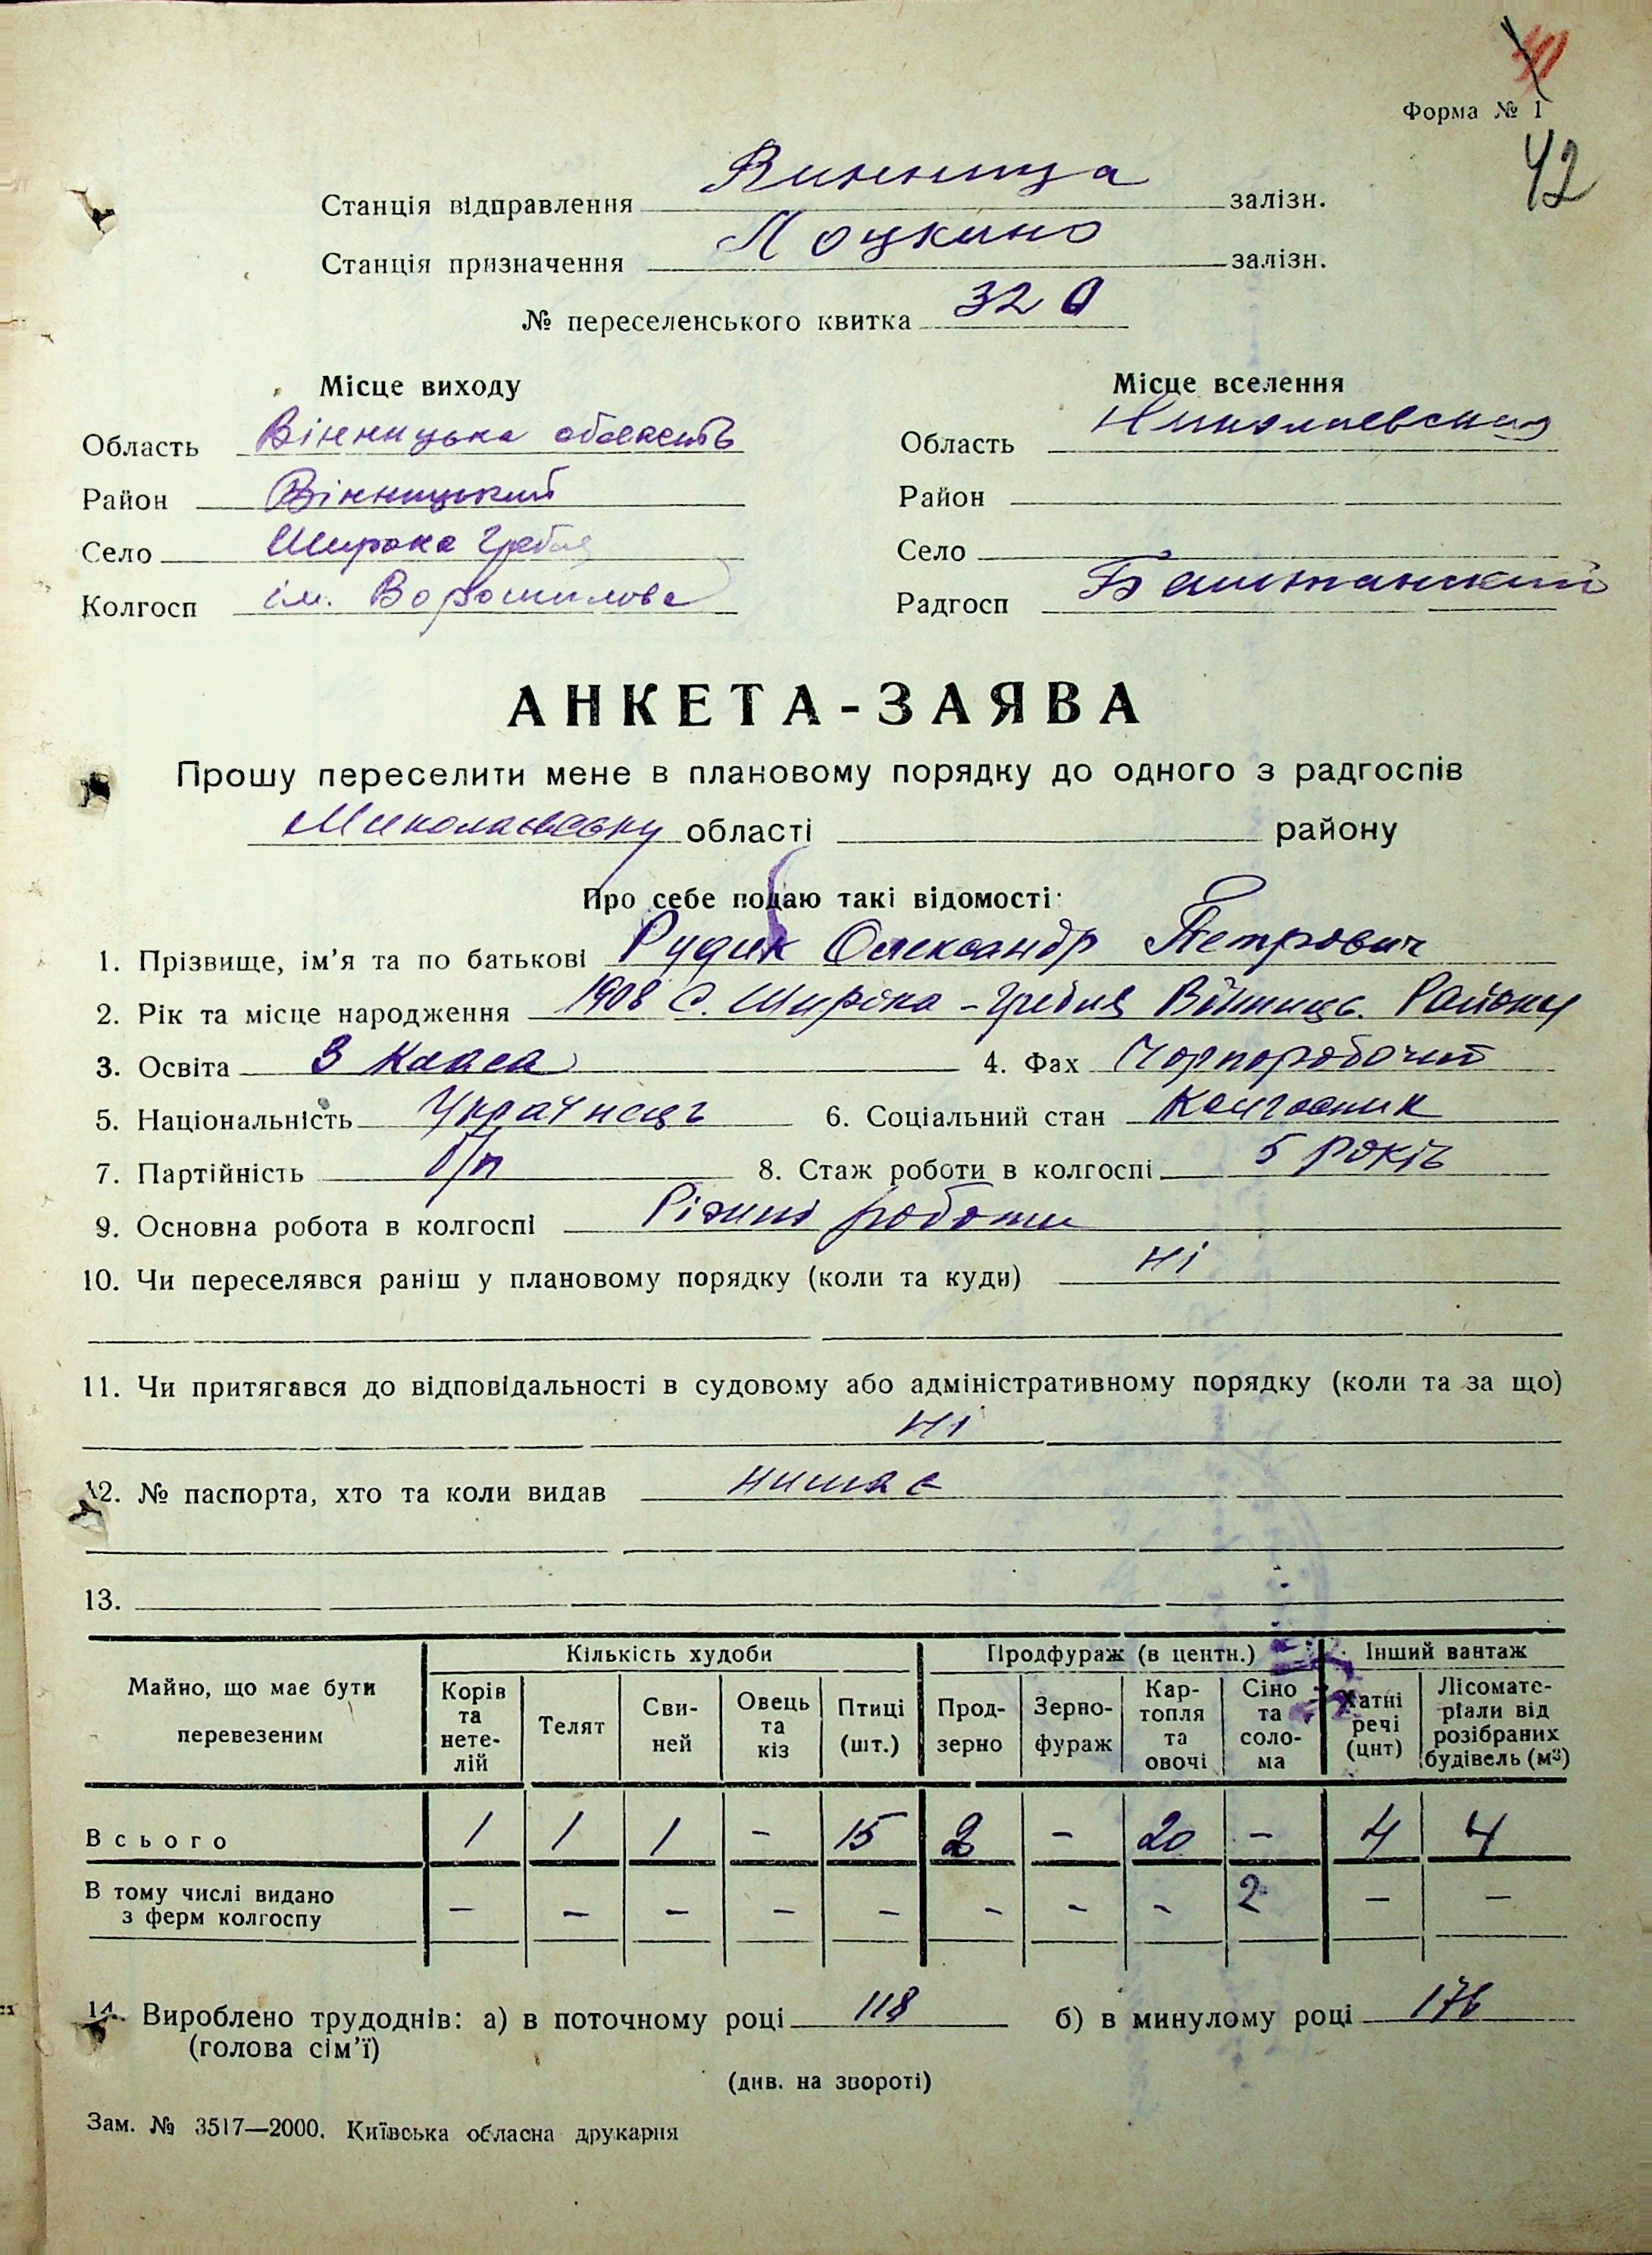 41
Форма № 1
42
Станція відправлення Винница залізн.
Станція призначення Лоцкино залізн.
№ переселенського квитка 320
Місце виходу
Область Вінницька область
Район Вінницький
Село Широка Гребля
Колгосп ім. Ворошилова
Місце вселення
Область Николаевская
Район
Село
Радгосп Баштанский
АНКЕТА-ЗАЯВА
Прошу переселити мене в плановому порядку до одного з радгоспів
області району
Про себе подаю такі відомості:
1. Прізвище, ім’я та по батькові Рудик Олександр Петрович
2. Рік та місце народження 1908 с. Широка-Гребля Вінниць. Району
3. Освіта 3 класа 4. Фах Чорноробочий
5. Національність Українець 6. Соціальний стан Колгоспник
7. Партійність б/п 8. Стаж роботи в колгоспі 5 років
9. Основна робота в колгоспі Різині роботи
10. Чи переселявся раніш у плановому порядку (коли та куди) ні
11. Чи притягався до відповідальності в судовому або адміністративному порядку (коли та за що)
ні
12. № паспорта, хто та коли видав
13.
Майно, що має бути перевезеним
Кількість худоби
Продфураж (в центн.)
Інший вантаж
Корів та нете-лій
Телят
Сви-ней
Овець та кіз
Птиці (шт.)
Прод-зерно
Зерно-фураж
Кар-топля та овочі
Сіно та соло-ма
Хатні речі (цнт)
Лісомате-ріали від розібраних будівель (м³)
Всього 1 1 1 - 15 2 - 20 - 4 4
В тому числі видано з ферм колгоспу - - - - - - - - 2 - -
14. Вироблено трудоднів: а) в поточному році 118 б) в минулому році 176
(голова сім’ї)
(див. на звороті)
Зам. № 3517—2000. Київська обласна друкарня